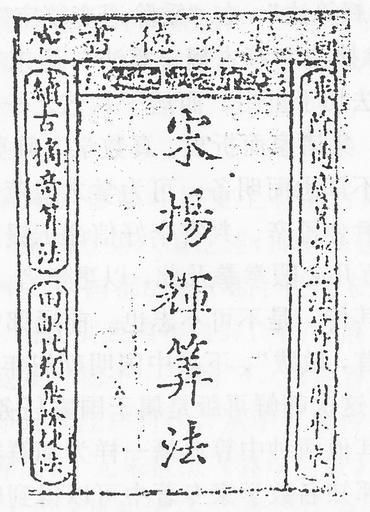 乘除通變算寶
法算取用本末
宋揚輝筭法
續古摘奇算法
田畝比類乘除捷法